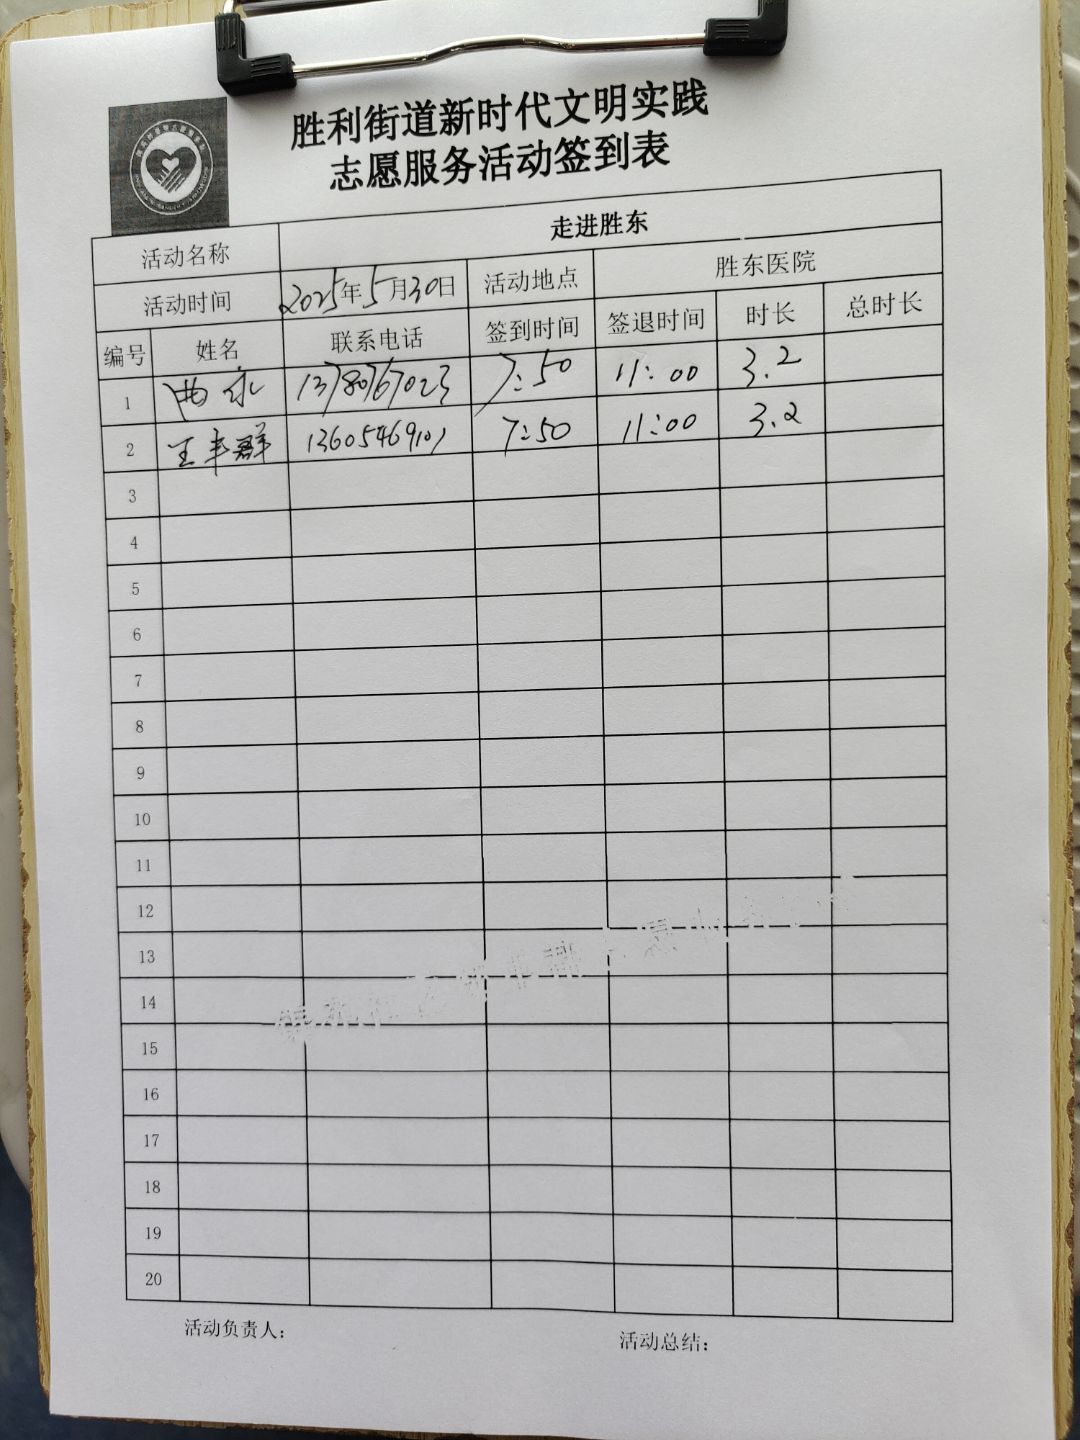 胜利街道新时代文明实践
志愿服务活动签到表
活动名称 走进胜东
活动时间 2025年5月30日 活动地点 胜东医院
编号 姓名 联系电话 签到时间 签退时间 时长 总时长
1 曲永 13780767023 7:50 11:00 3.2
2 王丰群 13605469101 7:50 11:00 3.2
3
4
5
6
7
8
9
10
11
12
13
14
15
16
17
18
19
20
活动负责人： 活动总结：